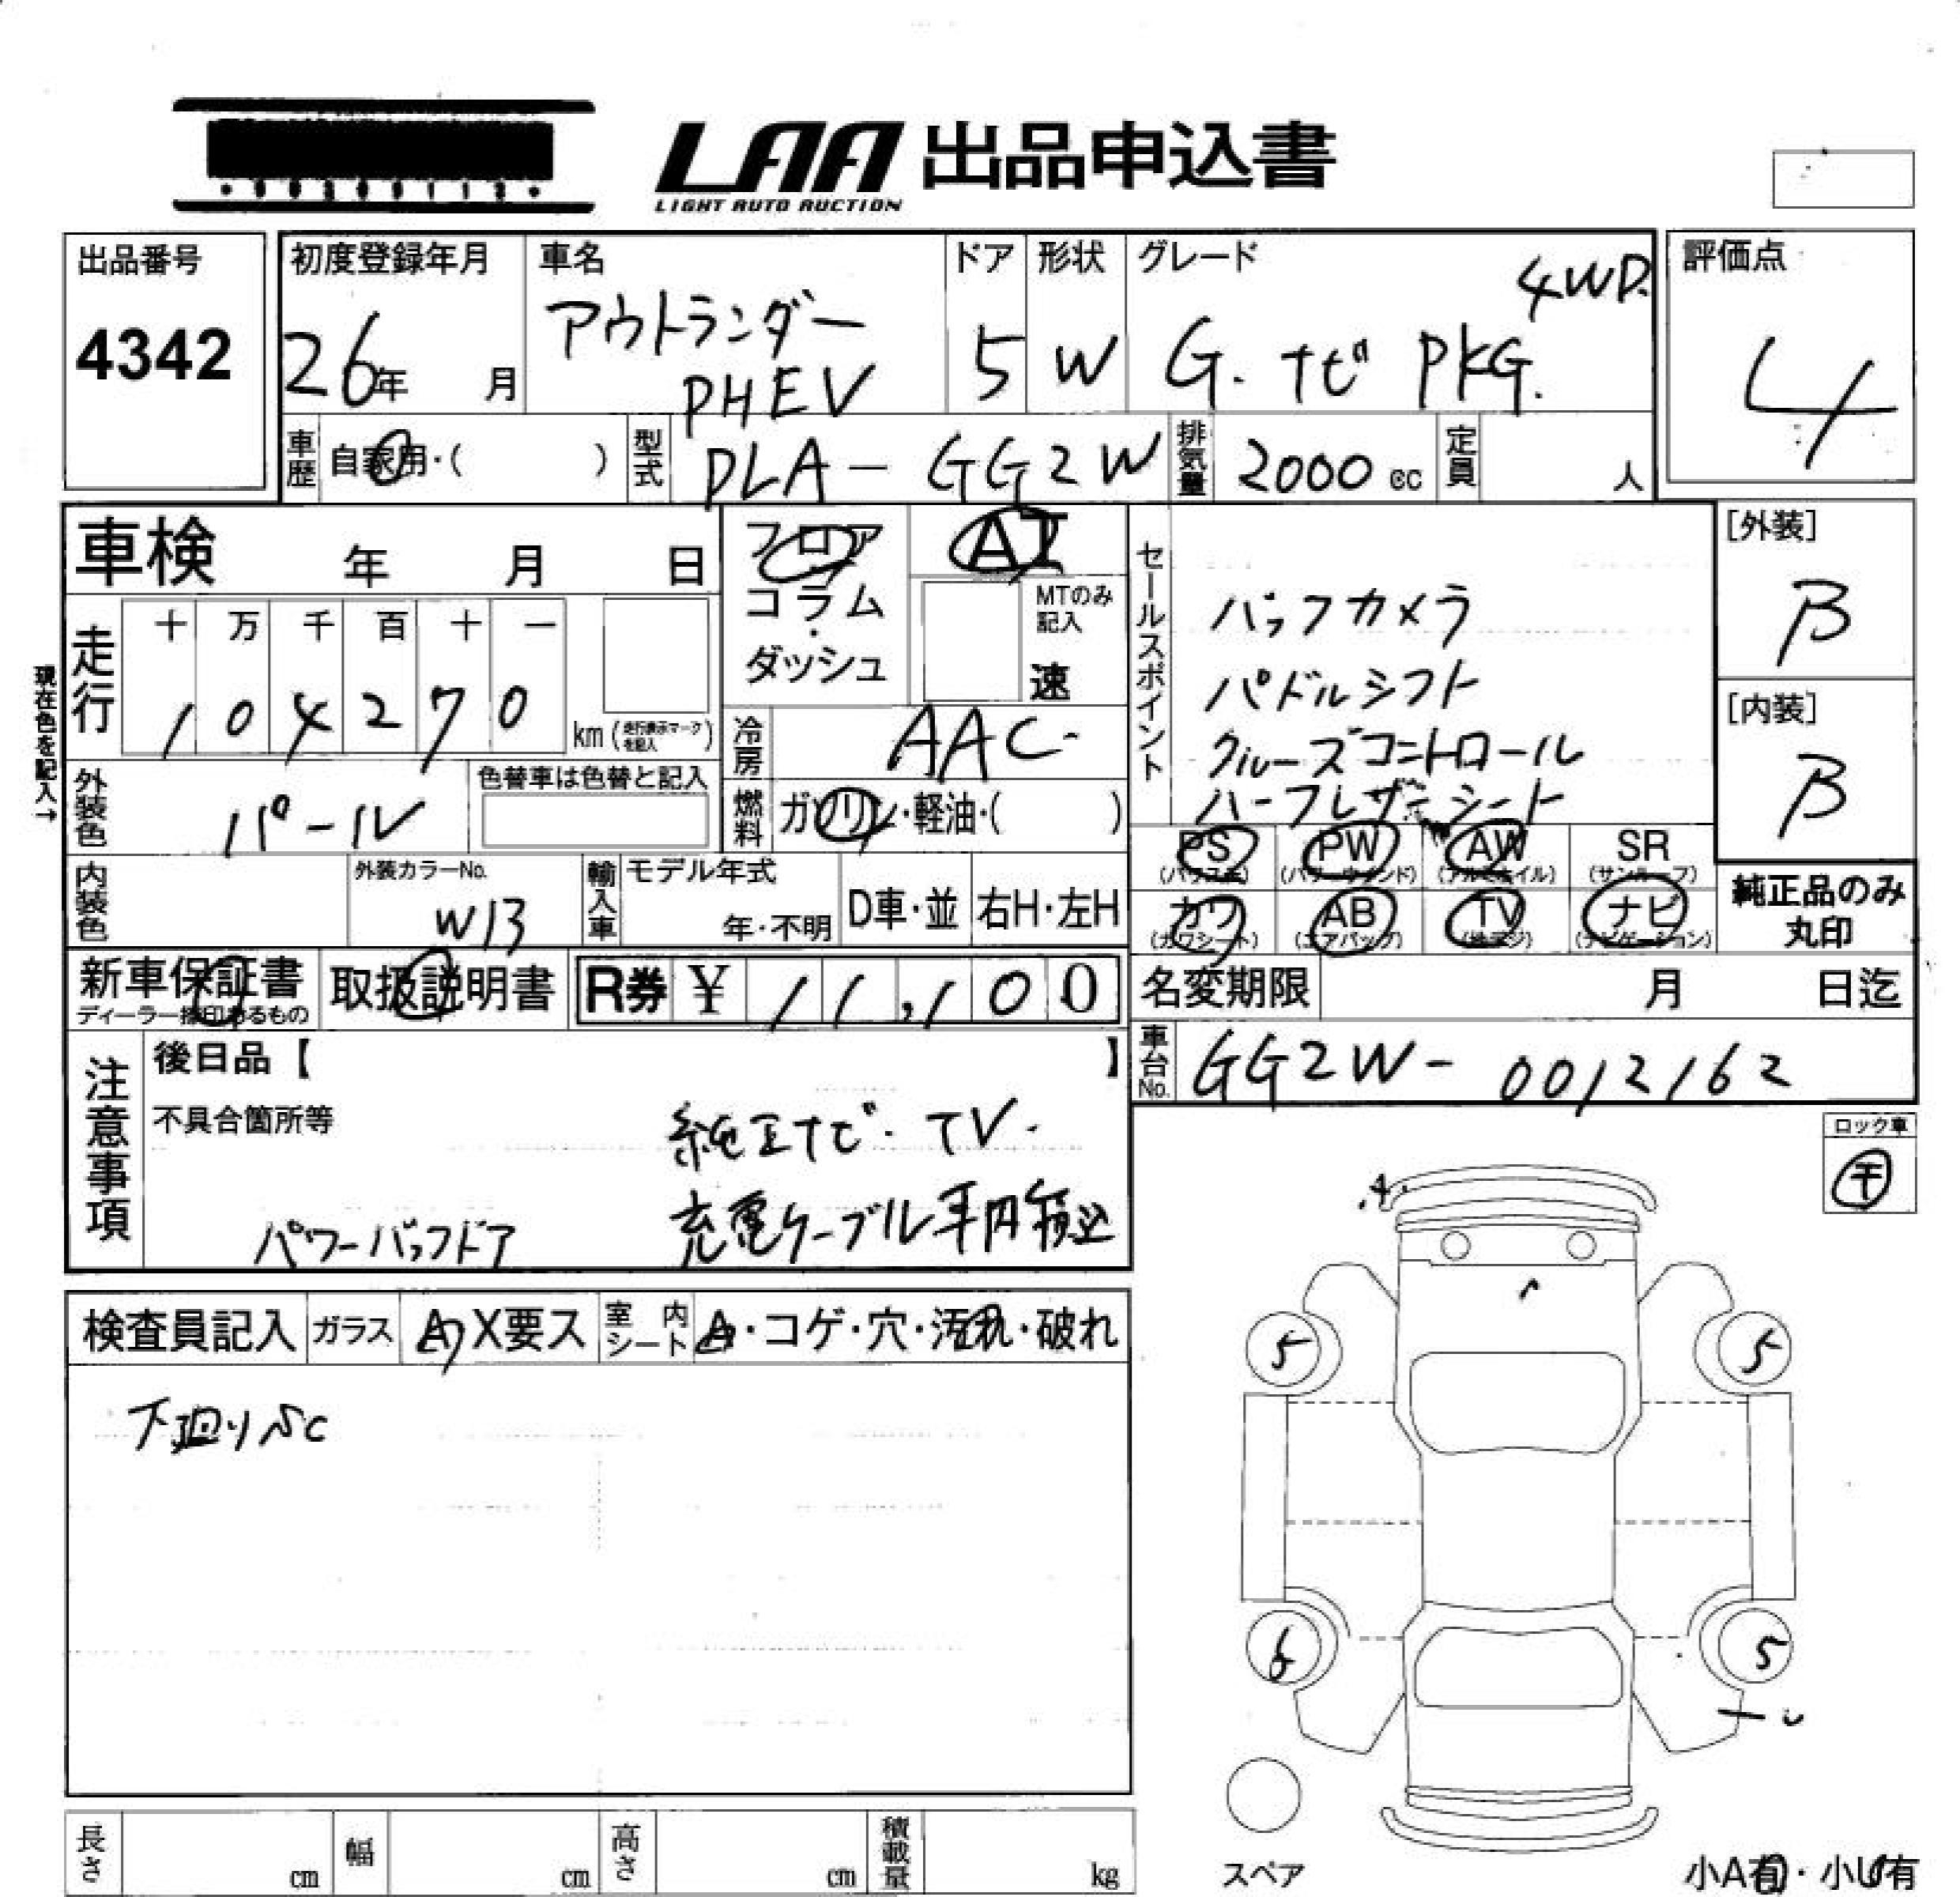 LAA 出品申込書
LIGHT AUTO AUCTION
出品番号
4342
初度登録年月
26年 月
車名
アウトランダー
PHEV
ドア
5
形状
W
グレード
4WD.
G. ナビ PKG.
評価点
4
車歴 自家用・( )
型式 DLA-GG2W
排気量 2000 cc
定員 人
車検 年 月 日
フロア
コラム
・
ダッシュ
AT
MTのみ
記入
速
走行
十 万 千 百 十 一
1 0 4 2 7 0
km (走行表示マークを記入)
現在色を記入→
冷房 AAC
燃料 ガソリン・軽油・( )
外装色 パール
色替車は色替と記入
内装色
外装カラーNo.
W13
輸入車
モデル年式
年・不明
D車・並
右H・左H
セールスポイント
バックカメラ
パドルシフト
クルーズコントロール
ハーフレザーシート
[外装]
B
[内装]
B
PS
(パワステ)
PW
(パワーウインド)
AW
(アルミホイル)
SR
(サンルーフ)
カワ
(カワシート)
AB
(エアバック)
TV
(地デジ)
ナビ
(ナビゲーション)
純正品のみ
丸印
新車保証書
ディーラー捺印あるもの
取扱説明書
R券 ¥ 11,100
名変期限 月 日迄
車台No. GG2W-0012162
注意事項
後日品【 】
不具合箇所等
純正ナビ・TV・
パワーバックドア
充電ケーブル車内積込
ロック車
千
検査員記入
ガラス
A X要ス
室内シート
A・コゲ・穴・汚れ・破れ
下廻りSC
5
5
6
5
スペア
小A有・小U有
長さ cm
幅 cm
高さ cm
積載量 kg